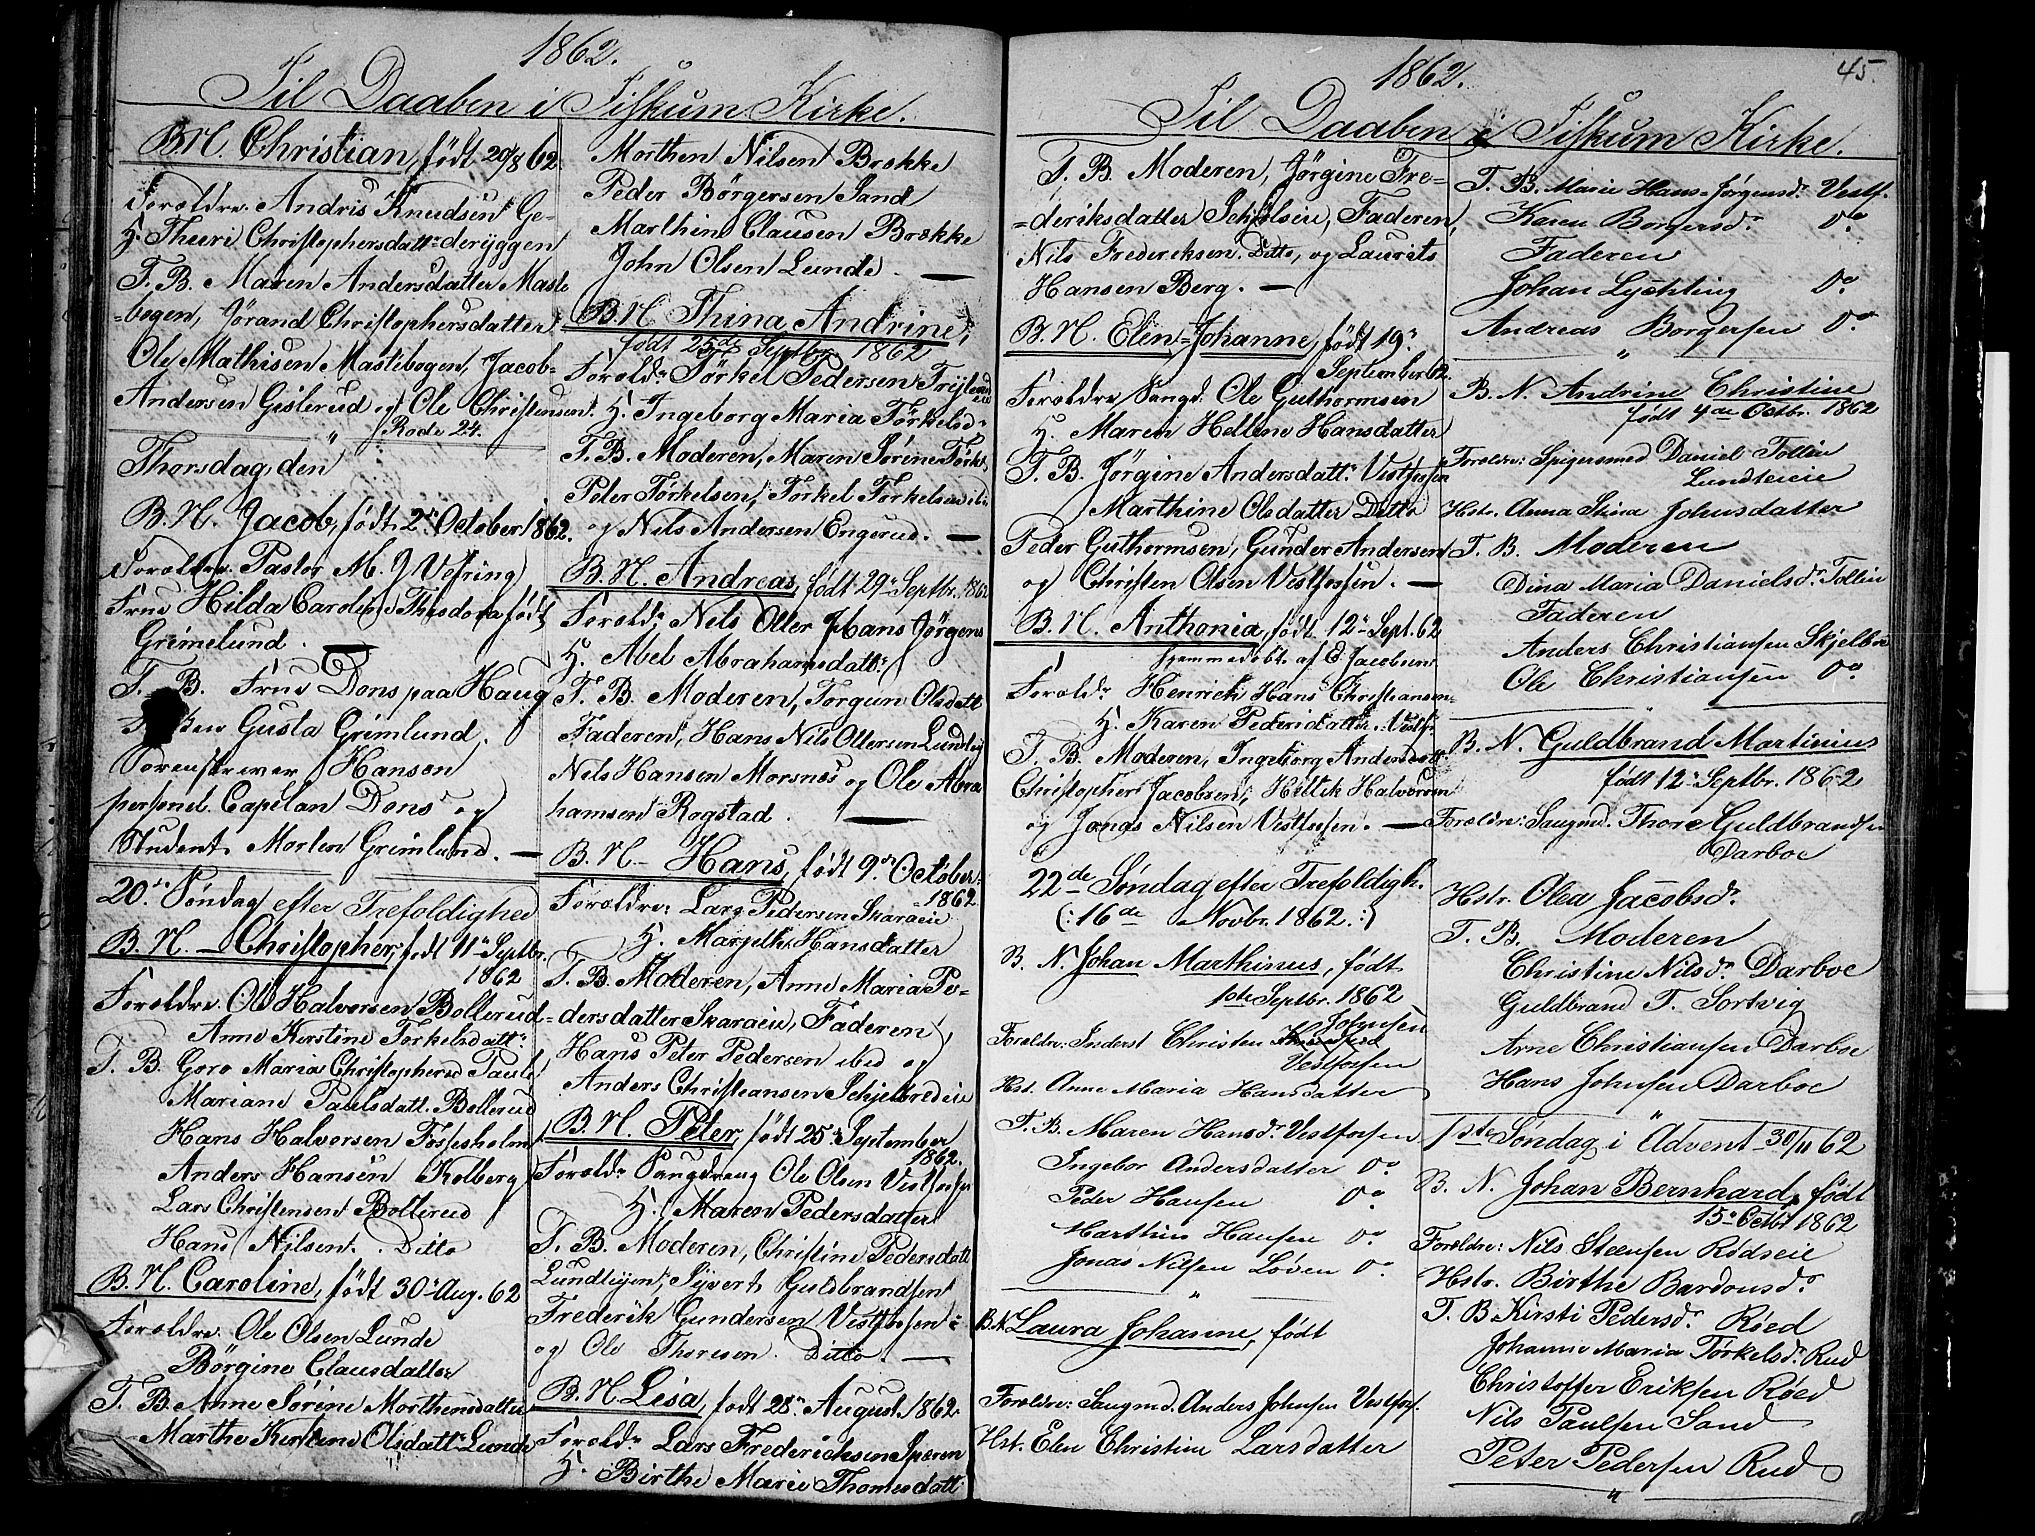 1862.
Til Daaben i Fiskum Kirke.
B. N. Christian, født 20/8 62.
Forældre. Andris Knudsen Ge-
H. Thuri Christophersdattr deryggen
T. B. Maren Andersdatter Maste
=bogen, Jørand Christophersdatter
Ole Mathisen Mastebogen, Jacob
Andersen Gislerud og Ole Christensen
Rode 24.
Thorsdag, den
B. N. Jacob, født 2n October 1862.
Forældre. Pastor M. J. Vefring
Frue Hilda Caroline Theodora født
Grimelund.
T. B. Frue Dons paa Haug
Gusta Grimlund,
Sorenskriver Hansen
personel. Capelan Dons og
Student Morten Grimlund. —
20de Søndag efter Trefoldighed
B. N. — Christopher, født 11n Septbr.
1862
Forældre. Ole Halvorsen Bollerud
Anne Kirstine Torkelsdattr
T. B. Goro Maria Christophersd
Mariane Paulsdatt. Bollerud
Hans Halvorsen Fossesholm
Anders Hansen Kolberg
Lars Christensen Bollerud
Hans Nilsen. Ditto
B. N. Caroline, født 30n Aug. 62
Forældre. Ole Olsen Lunde
Børgine Clausdatter
T. B. Anne Sørine Morthensdatter
Marthe Kirstine Olsdattr Lunde
Morthen Nilsen Brække
Peder Børgersen Sand
Marthin Clausen Brække
John Olsen Lunde. —
B. N. Thina Andrine,
født 25de Septbr 1862
Foræld: Tørkel Pedersen
H. Ingeborg Maria Tørkelsd
T. B. Moderen, Maren Sørine Tørks.
Peter Tørkelsen, Torkel Torkelsen
og Nils Andersen Engerud. —
B. N. Andreas, født 29n Septbr. 1862
Foræld: Nils Oller Hans Jørgens
H. Abel Abrahamsdattr
T. B. Moderen, Torgun Olsdatt
Faderen, Hans Nils Ollersen
Nils Hansen Morsnes og Ole Abra
hamsen Rogstad. —
B. N. — Hans, født 9de October
1862
Forældre: Lars Pedersen Skaraeie
H. Margethe Hansdatter
T. B. Moderen, Anne Maria Pe-
=dersdatter Skaraeie, Faderen,
Hans Peter Pedersen ibid og
Anders Christiansen
B. N. Peter, født 25n September
1862.
Foræld: Ole Olsen Vestfossen
H. Maren Pedersdatter
T. B. Moderen, Christine Pedersdatt
Syvert Guldbrandsen
Frederik Gundersen Vestfossen
og Ole Thoresen. Ditto. —
B. N. Lisa, født 28n August 1862.
Foræld: Lars Frederichsen
H. Birthe Marie Thomasdatt
1862.
45.
Til Daaben i Fiskum Kirke.
T. B. Moderen, Jørgine Fre=
=deriksdatter, Faderen,
Nils Frederiksen. Ditto, og Laurits
Hansen Berg. —
B. N. Elen=Johanne, født 19n
September 62.
Forældre Ole Guthormsen
H. Maren Hellene Hansdatter
T. B. Jørgine Andersdattr Vestfossen
Marthine Olsdatter Ditto
Peder Guthormsen, Gunder Andersen
og Christen Olsen Vestfossen. —
B. N. Anthonia, født 12n Sept. 62
hjemmedøbt af E Jacobsen
Foræld: Henrich Hans Christiansen
H. Karen Pedersdatter Vestf.
T. B. Moderen, Ingeborg Andersdatt.
Christopher Jacobsen, Halvorsen
og Jonas Nilsen Vestfossen. —
22de Søndag efter Trefoldigh.
(: 16de Novbr. 1862. :)
B. N. Johan Marthinus, født
1ste Septbr. 1862
Johnsen
Forældre: Inderst Christen
Vestfossen
Hst. Anne Maria Hansdatter
T. B. Maren Hansdr Vestfossen
Ingebor Andersdatter Do
Peder Hansen Do
Marthin Hansen Do
Jonas Nilsen Løven Do
B. N. Laura Johanne, født
Forældre: Saugmd. Anders Johnsen Vestfos.
Hst. Elen Christine Larsdatter
T. B. Marie Hans=Jørgensdr Vestf.
Karen Borgersdr Do
Faderen
Johan Lychting Do
Andreas Borgersen Do
B. N. Andrine Christine
født 4de Octbr. 1862
Forældre: Spigersmed Daniel Tollin
Lundteeie
Hstr. Anna Stina Johnsdatter
T. B. Moderen
Dina Maria Danielsdr Tollin
Faderen
Anders Christiansen Skjelbre
Ole Christiansen Do
B. N. Guldbrand Martinius
født 12n Septbr. 1862
Forældre: Saugmd. Thore Guldbrandsen
Darboe
Hstr. Olea Jacobsdr
T. B. Moderen
Christine Nilsdr Darboe
Guldbrand T. Sortvig
Arne Christiansen Darboe
Hans Johnsen Darboe
1ste Søndag i Advent 30/11 62
B. N. Johan Bernhard, født
15n Octbr 1862
Forældre: Nils Steensen Rødseie
Hstr. Birthe Bardonsdr
T. B. Kirsti Pedersdr Røed
Johanne Maria Torkelsdr Rud
Christoffer Eriksen Røed
Nils Paulsen Sand
Peter Pedersen Rud